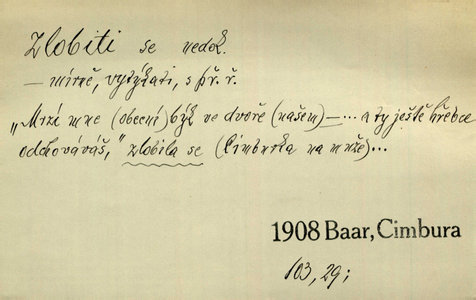 zlobiti se nedok.
— mírně, vytýkati, s př. ř.
„Mrzí mne (obecní) býk ve dvoře (našem) — ... a ty ještě hřebce
odchováváš," zlobila se (Cimburka na muže)...
1908 Baar, Cimbura
103, 29;